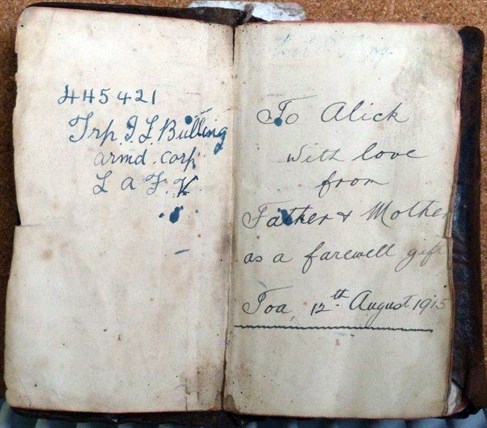 445421
Trp. J. L. Bulling
armd. corp.
2 N. Z. E. F.
To Alick
with love
from
Father & Mother
as a farewell gift
Toa, 12th August 1915